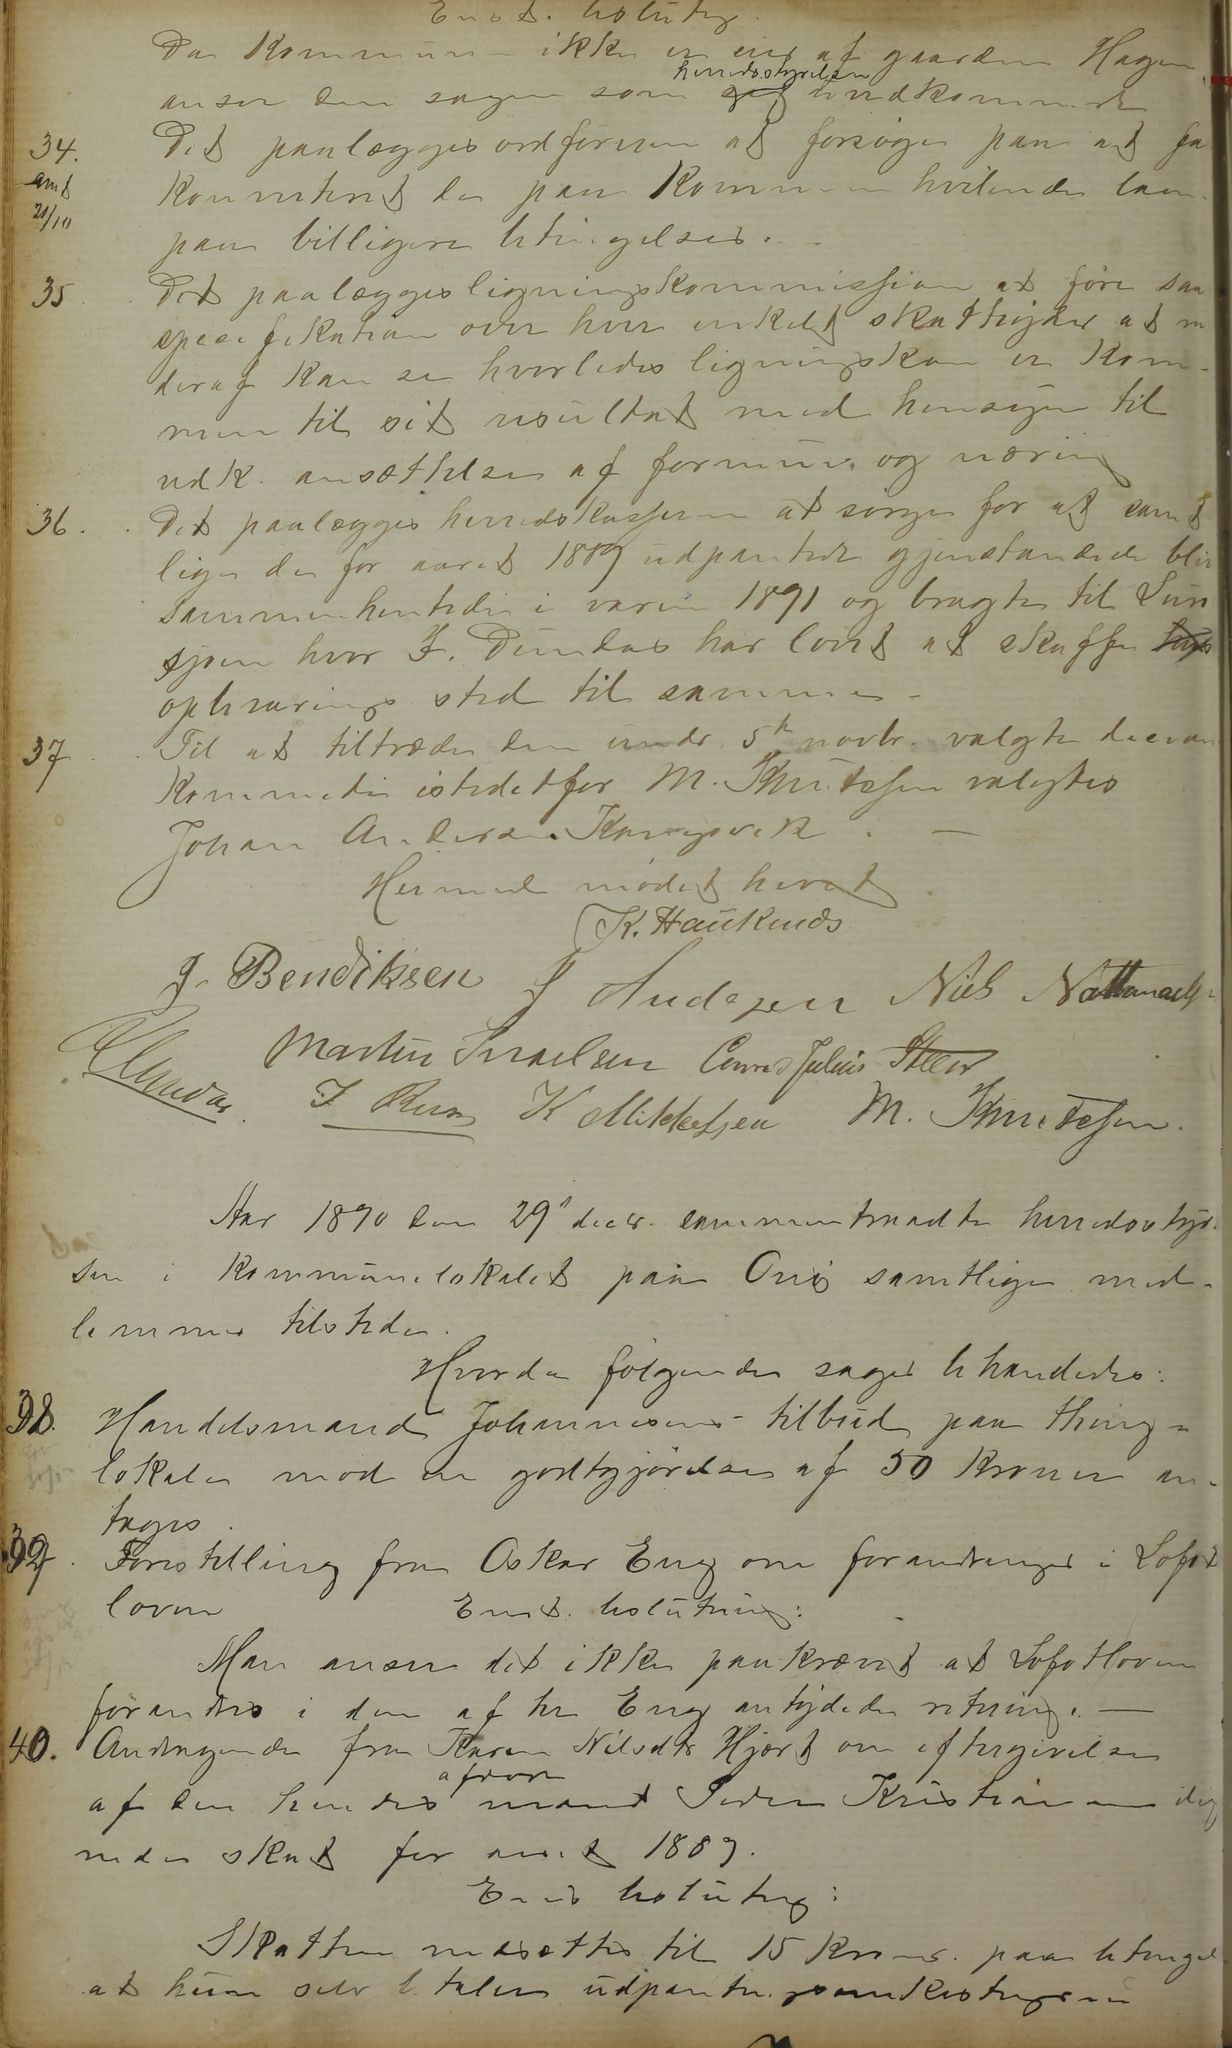 Enst. beslutng.
Da Kommunen ikke er eier af gaarden Hagen
herredsstyrelsen
anser den sagen som uvedkommende
34. Det paalægges ordföreren at forsöge paa at faa
amt Konverteret de paa Kommunen hvilende laan
21/10 paa billigere betingelser. —
35 Det paalægges ligningskommissionen at före saa
specifikation over hver enkelt skatteyder at m
deraf kan se hvorledes ligningskom er kom-
men til sit resultat med hensyn til
udk. ansættelse af formue og næring
36. Det paalægges herredskasseren at sörge for at samt
lige de for aaret 1889 udpantede gjenstande bliv
sammenhentede i vaaren 1891 og bragte til
sjöen hvor J. Dundas har lovet at skaffe
opbevarings sted til samme —
37 Til at tiltræde den under 5te novbr. valgte
Kommite istedetfor M. Knutssen valgtes
Johan Andersen Kangsvik. —
Hermed mödet hævet.
K. Haukunds
J. Bendiksen J Andersen Niels Nathanaels
Martin Israelsen Conrad Julius Steen
Dundas. J K Mikkelssen M. Knutssen.
Aar 1890 den 29de decbr. sammentraadte herredssty
sen i Kommunelokalet paa Önes samtlige med-
lemmer tilstede.
Hvorda fölgende sager behandledes:
38. Handelsmand Johannesens tilbud paa thing-
lokale mod en godtgjörelse af 50 Kroner an-
tages.
39. Forestilling fra Oskar Eng om forandringer i Lofot
loven Enst. beslutning:
Man anser det ikke paakrævet at Lofotloven
forandres i den af hr Eng antydede retning. —
40. Andragende fra Karen Nilsdtr Hjort om eftergivelse
afdöde
af den hendes mand Peder Kristiansen ilig
nede skat for aaret 1889.
Enst beslutng:
Skatten nedsættes til 15 Kroner. paa betingel
at hun selv betaler